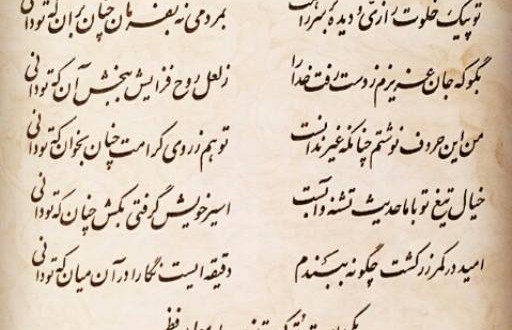 تو پیک خلوت رازی و دیده بر سر راهت بمردمی نه بفرمان چنان بران که تو دانی
بگو که جان عزیزم ز دست رفت خدا را ز لعل روح فزایش ببخش آن که تو دانی
من این حروف نوشتم چنانکه غیر ندانست تو هم ز روی کرامت چنان بخوان که تو دانی
خیال تیغ تو با ما حدیث تشنه و آبست اسیر خویش گرفتی بکش چنان که تو دانی
امید در کمر زرکشت چگونه ببندم دقیقه ایست نگارا در آن میان که تو دانی